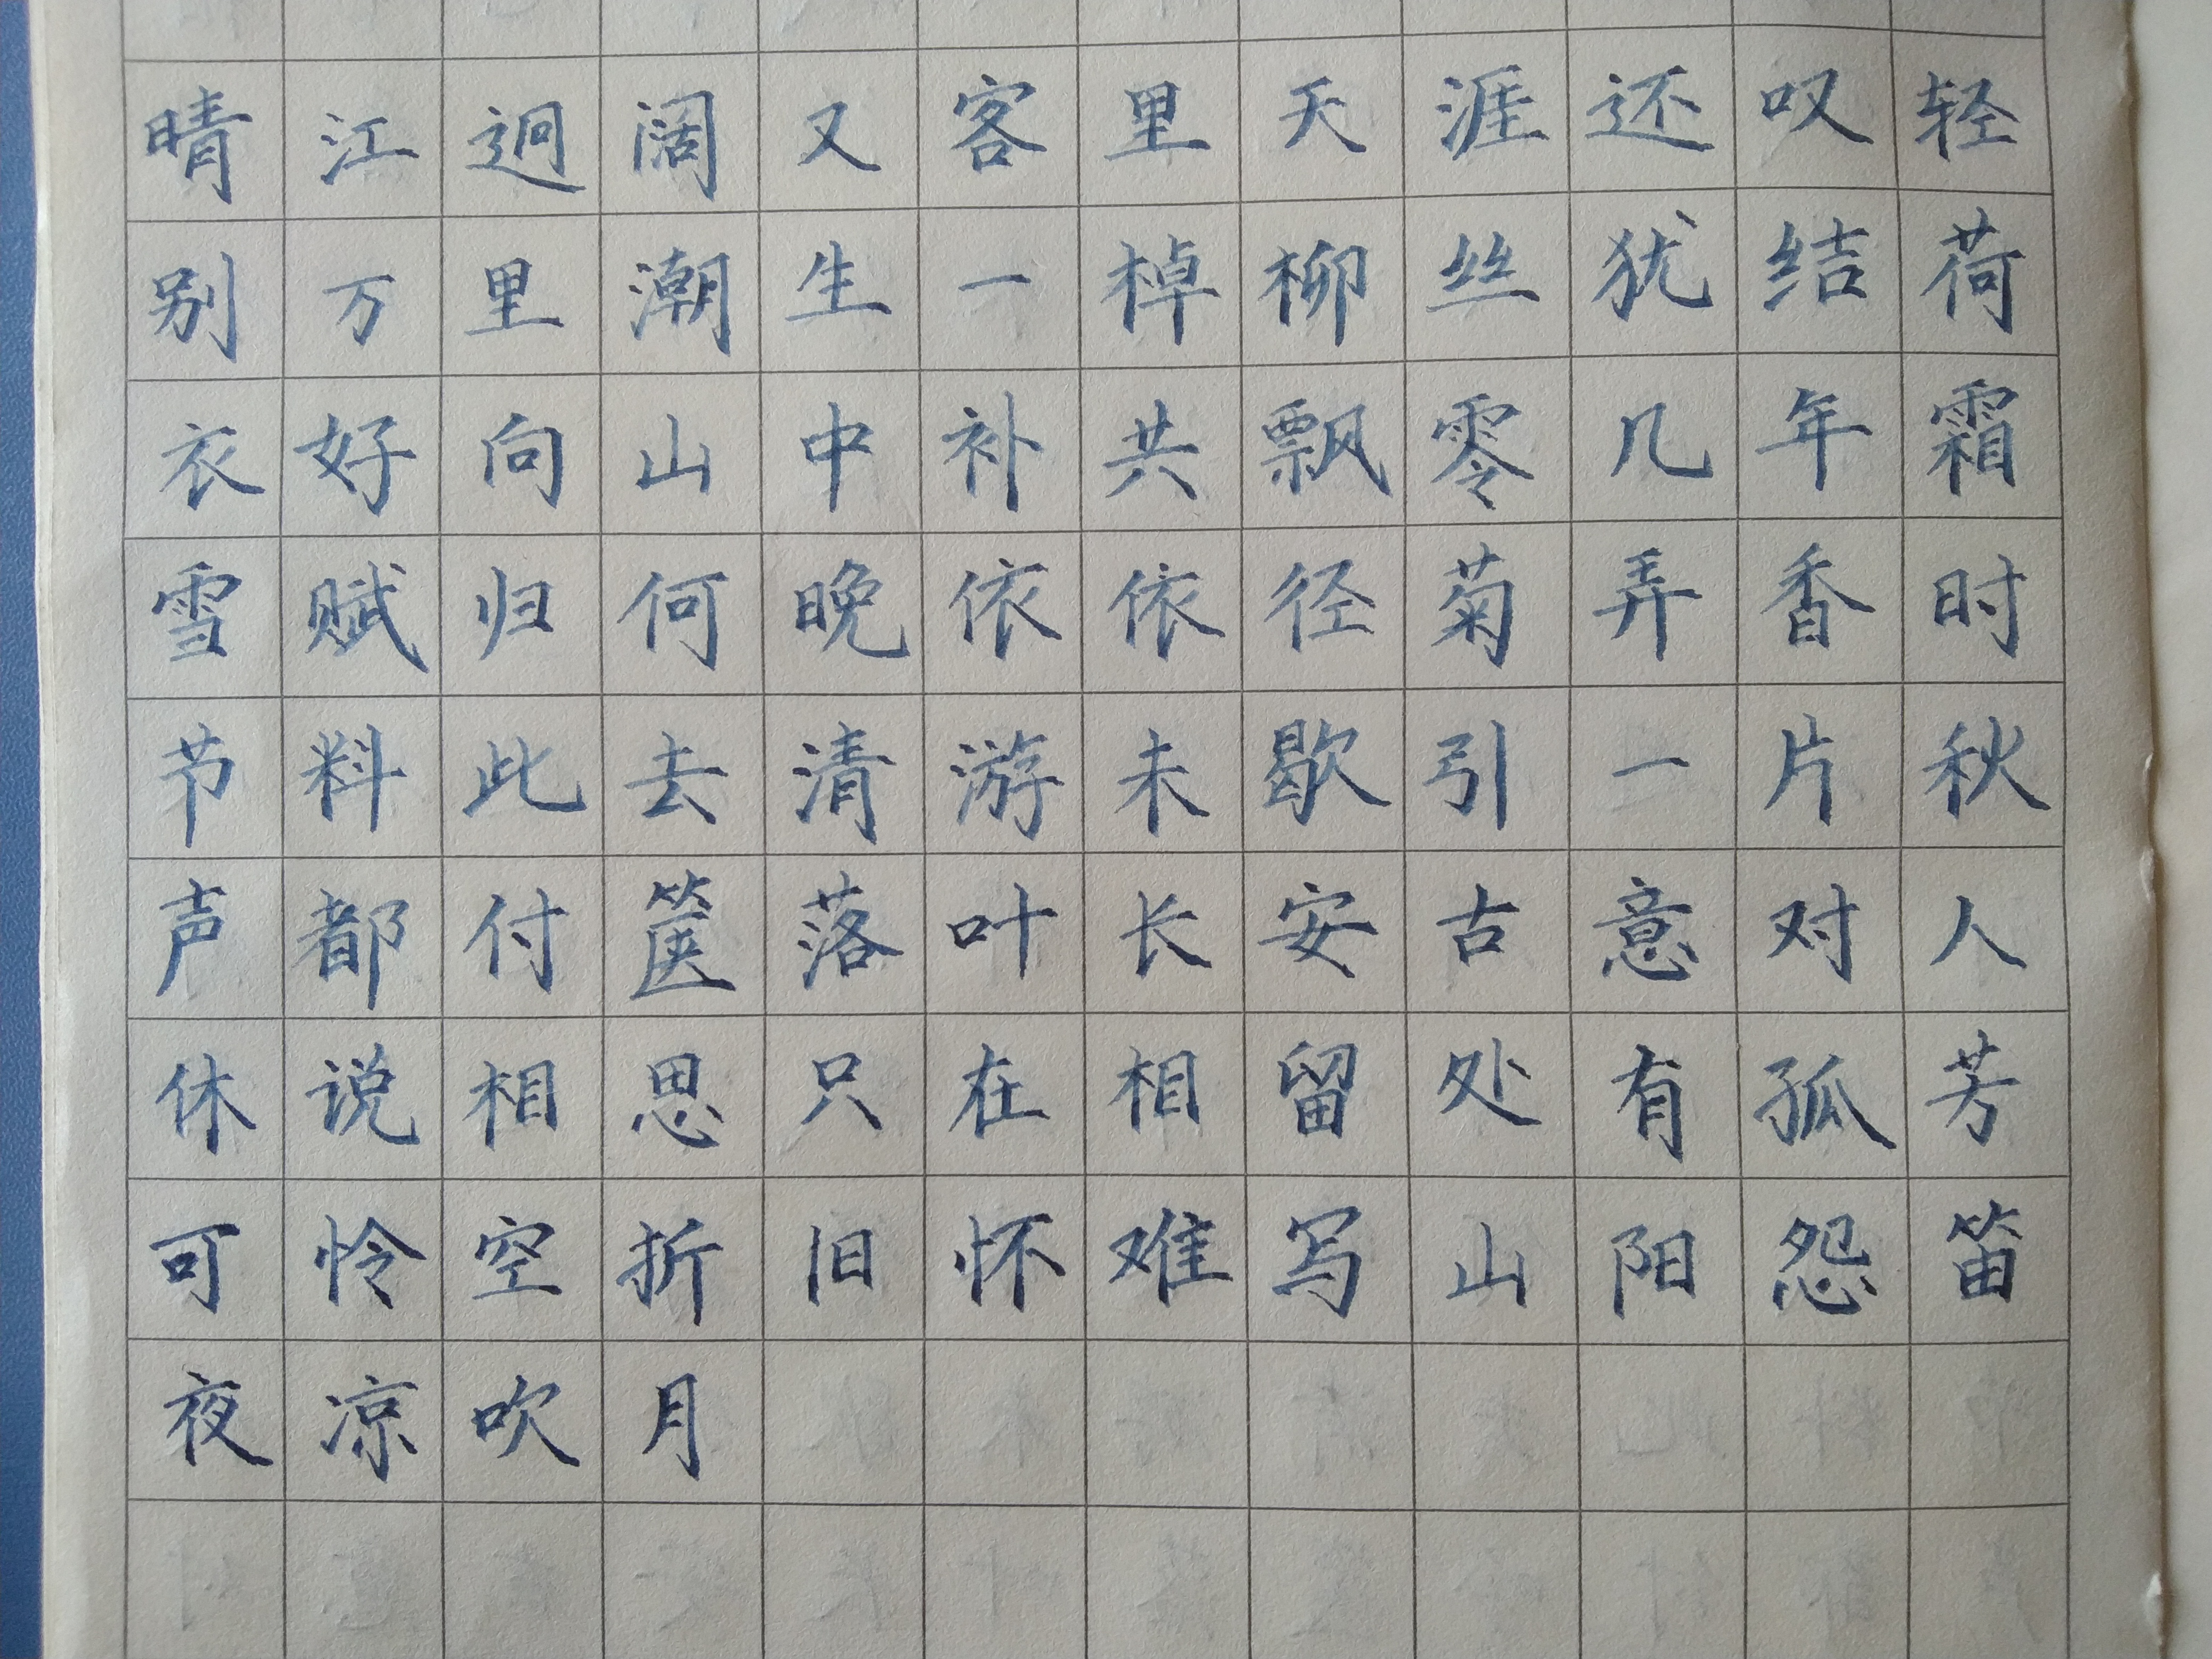 晴江迥阔又客里天涯还叹轻
别万里潮生一棹柳丝犹结荷
衣好向山中补共飘零几年霜
雪赋归何晚依依径菊弄香时
节料此去清游未歇引一片秋
声都付箧落叶长安古意对人
休说相思只在相留处有孤芳
可怜空折旧怀难写山阳怨笛
夜凉吹月